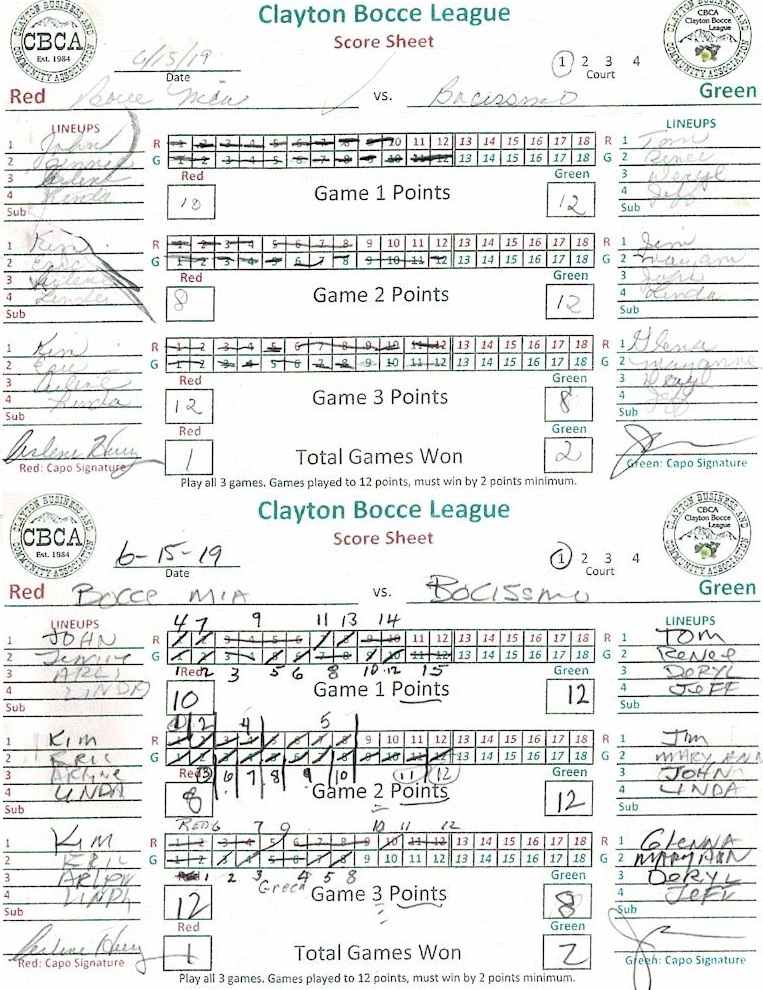 Clayton Bocce League
Score Sheet
CLAYTON BUSINESS AND COMMUNITY ASSOCIATION
CBCA
Est. 1984
CBCA
Clayton Bocce
League
6/15/19
Date
1 2 3 4
Court
Red Bocce Mia vs. Bocissmo Green
LINEUPS
1 John
2 Jennie
3 Arlene
4 Linda
Sub
R 1 2 3 4 5 6 7 8 9 10 11 12 13 14 15 16 17 18 R
G 1 2 3 4 5 6 7 8 9 10 11 12 13 14 15 16 17 18 G
Red Game 1 Points Green
10 12
LINEUPS
1 Tom
2 Renee
3 Deryl
4 Jeff
Sub
1 Kim
2 Eric
3 Arlene
4 Linda
Sub
R 1 2 3 4 5 6 7 8 9 10 11 12 13 14 15 16 17 18 R
G 1 2 3 4 5 6 7 8 9 10 11 12 13 14 15 16 17 18 G
Red Game 2 Points Green
8 12
1 Jim
2 Maryann
3 John
4 Linda
Sub
1 Kim
2 Eric
3 Arlene
4 Linda
Sub
R 1 2 3 4 5 6 7 8 9 10 11 12 13 14 15 16 17 18 R
G 1 2 3 4 5 6 7 8 9 10 11 12 13 14 15 16 17 18 G
Red Game 3 Points Green
12 8
1 Glenna
2 Maryanne
3 Deryl
4 Jeff
Sub
Red Green
1 Total Games Won 2
Red: Capo Signature
Green: Capo Signature
Play all 3 games. Games played to 12 points, must win by 2 points minimum.
Clayton Bocce League
Score Sheet
CLAYTON BUSINESS AND COMMUNITY ASSOCIATION
CBCA
Est. 1984
CBCA
Clayton Bocce
League
6-15-19
Date
1 2 3 4
Court
Red BOCCE MIA vs. BOCISSMO Green
LINEUPS
1 JOHN
2 JENNIE
3
4 LINDA
Sub
4 7 9 11 13 14
R 1 2 3 4 5 6 7 8 9 10 11 12 13 14 15 16 17 18 R
G 1 2 3 4 5 6 7 8 9 10 11 12 13 14 15 16 17 18 G
1 2 3 5 6 8 10 12 15
Red Game 1 Points Green
10 12
LINEUPS
1 TOM
2 RENEE
3 DERYL
4 JEFF
Sub
1 KIM
2 ERIC
3 ARLENE
4 LINDA
Sub
1 2 4 5
R 1 2 3 4 5 6 7 8 9 10 11 12 13 14 15 16 17 18 R
G 1 2 3 4 5 6 7 8 9 10 11 12 13 14 15 16 17 18 G
3 6 7 8 9 10 11 12
Red Game 2 Points Green
8 12
1 JIM
2 MARY ANN
3 JOHN
4 LINDA
Sub
1 KIM
2 ERIC
3 ARLEN
4 LINDA
Sub
RED 6 7 9 10 11 12
R 1 2 3 4 5 6 7 8 9 10 11 12 13 14 15 16 17 18 R
G 1 2 3 4 5 6 7 8 9 10 11 12 13 14 15 16 17 18 G
Red 1 2 3 4 5 8
Green
Game 3 Points Green
12 8
1 GLENNA
2 MARYANN
3 DERYL
4 JEFF
Sub
Red Green
1 Total Games Won 2
Red: Capo Signature
Green: Capo Signature
Play all 3 games. Games played to 12 points, must win by 2 points minimum.